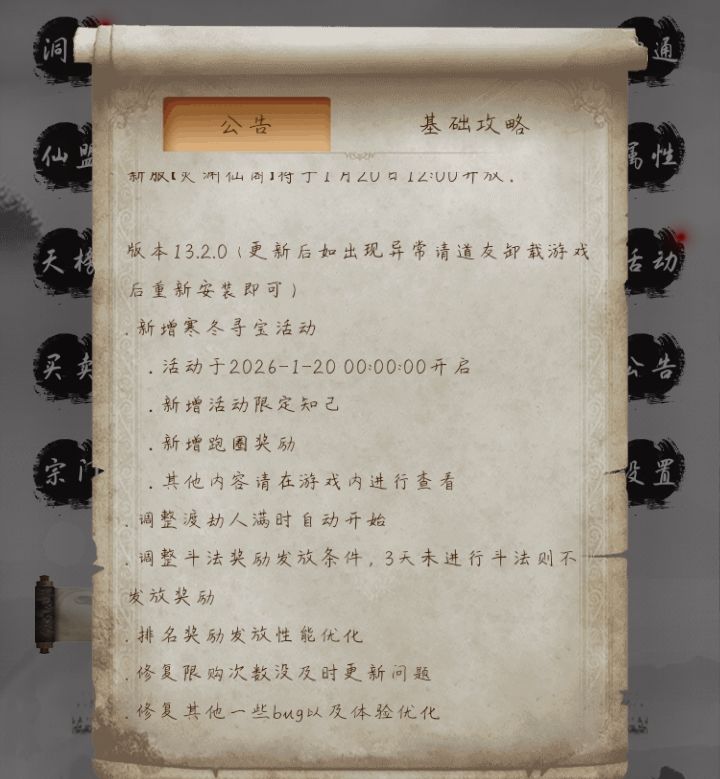 公告
基础攻略
新服【灵渊仙阁】将于1月20日12:00开放.
版本13.2.0(更新后如出现异常请道友卸载游戏
后重新安装即可)
.新增寒冬寻宝活动
.活动于2026-1-20 00:00:00开启
.新增活动限定知己
.新增跑圈奖励
.其他内容请在游戏内进行查看
.调整渡劫人满时自动开始
.调整斗法奖励发放条件,3天未进行斗法则不
发放奖励
.排名奖励发放性能优化
.修复限购次数没及时更新问题
.修复其他一些bug以及体验优化
洞
通
仙盟
属性
天榜
活动
买卖
公告
宗门
设置